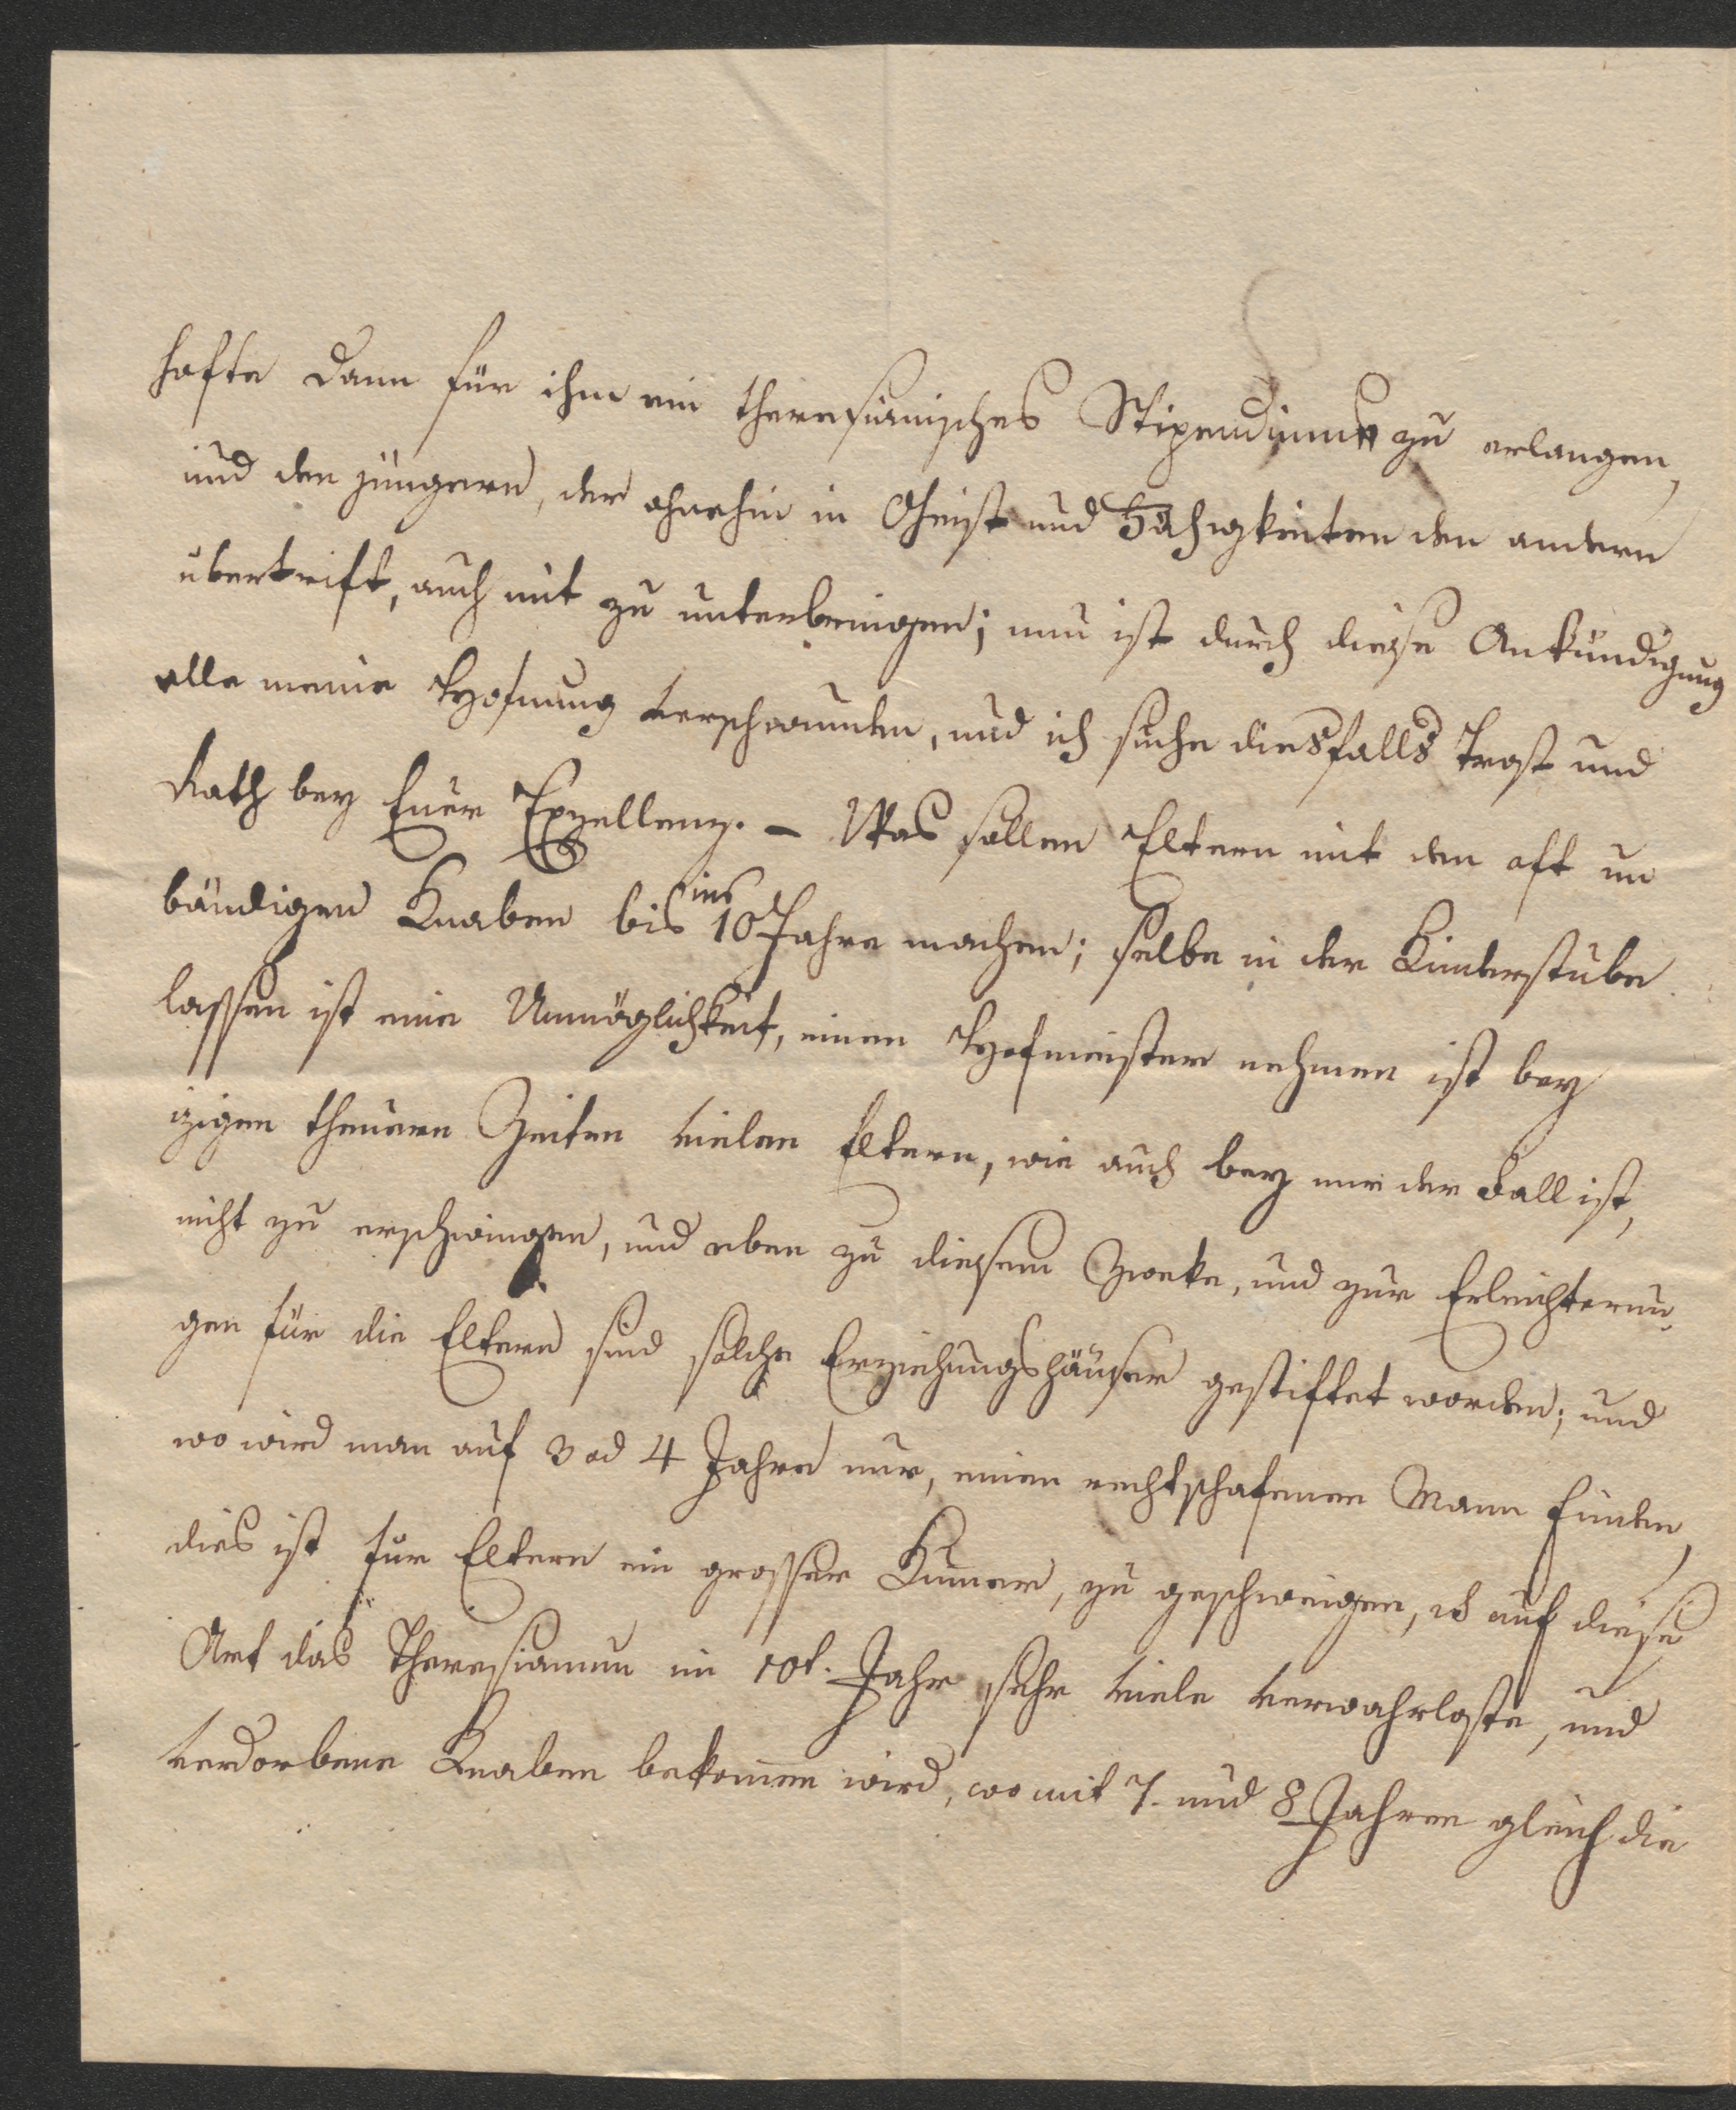 hofte dann für ihm ein theresianisches Stipendium zu erlangen,
und den jüngern, der ohnehin in Geist und Fähigkeiten den andern
übertrift, auch mit zu unterbringen; nun ist durch diese Ankündigung
alle meine Hofnung verschwunden, und ich suche diesfalls Trost und
Rath bey Euer Exzellenz. – Was sollen Eltern mit den oft un
bändigen Knaben bis ins 10 Jahre machen; selbe in der Kinderstube
lassen ist eine Unmöglichkeit, einen Hofmeister nehmen ist bey
izigen theuern Zeiten vielen Eltern, wie auch bey mir der Fall ist,
nicht zu erschwingen, und eben zu diesem Zweke, und zur Erleichterun,
gen für die Eltern sind solche Erziehungshäuser gestiftet worden; und
wo wird man auf 3 od 4 Jahre nur, einen rechtschafenen Mann finden,
dies ist für Eltern ein grosser Kumer, zu geschweigen, dß auf diese
Art das Theresianum im 10t. Jahr sehr viele verwahrloste, und
verdorbene Knaben bekomen wird, wo mit 7. und 8 Jahren gleich die